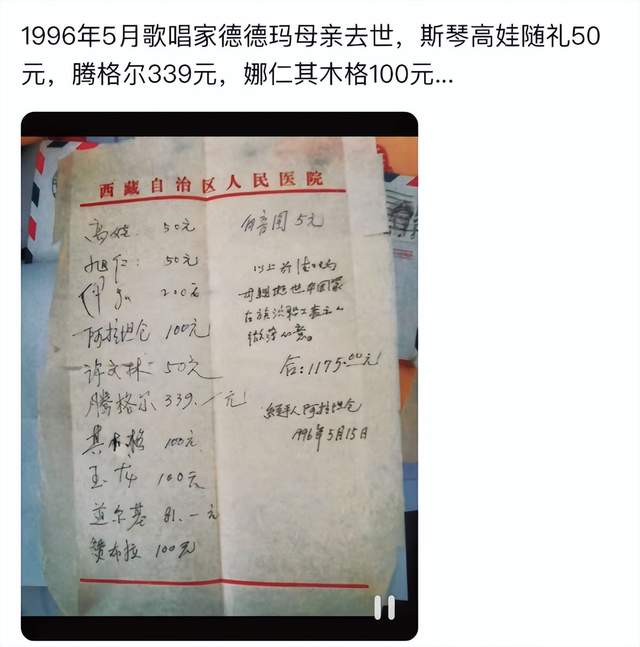 1996年5月歌唱家德德玛母亲去世，斯琴高娃随礼50
元，腾格尔339元，娜仁其木格100元...
西藏自治区人民医院
高娃 50元
旭仁: 50元
200元
阿拉坦仓 100元
许文林 50元
腾格尔 339.一元
其木格 100元
玉龙 100元
道尔基 81.一元
赞布拉 100元
5元
以上为德德玛
母亲逝世中国蒙
古族
合:1175.00元
经手人阿拉坦仓
1996年5月15日